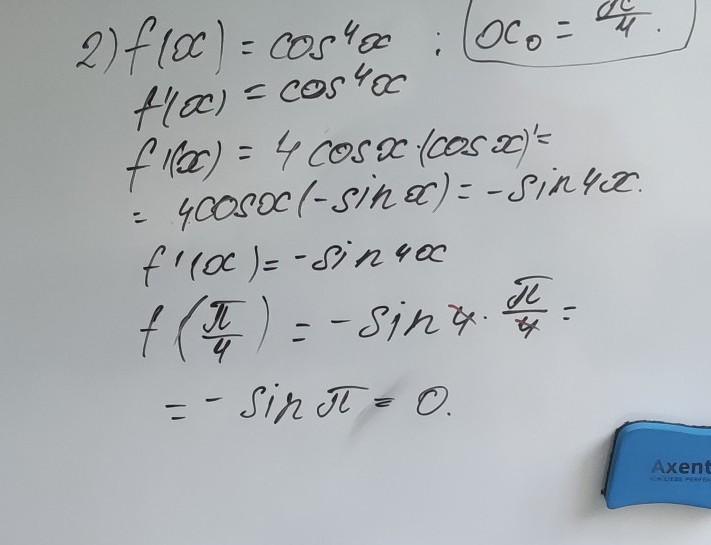 2) f(x) = cos⁴x ; x₀ = π/4.
f'(x) = cos⁴x
f'(x) = 4 cosx·(cos x)' =
= 4cosx(-sin x) = -sin4x.
f'(x) = -sin4x
f(π/4) = -sin4·π/4 =
= - sin π = 0.
Axent